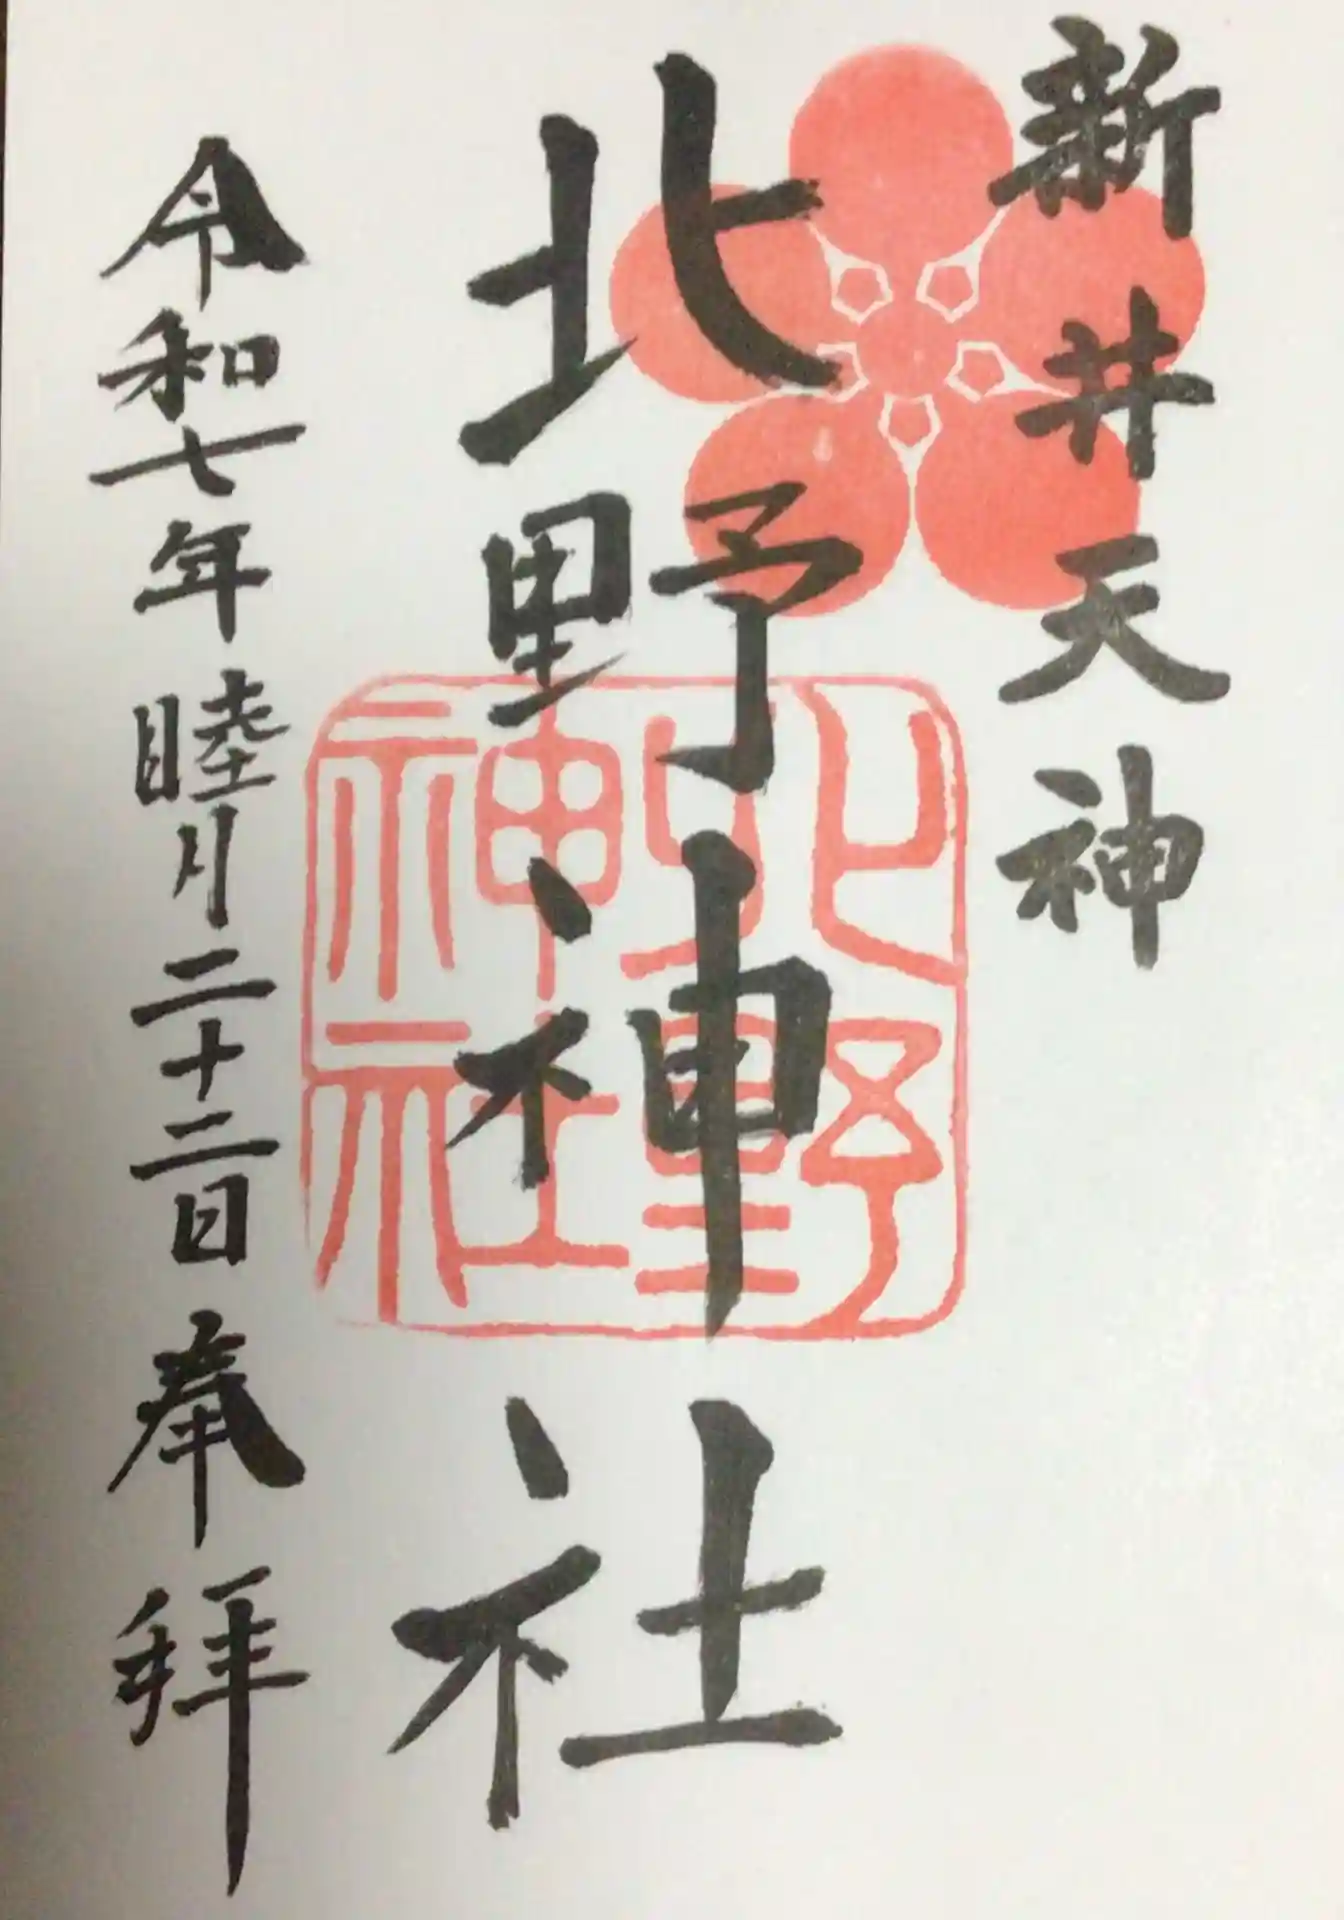 新井天神
北野神社
令和七年睦月二十二日奉拝
北野神社